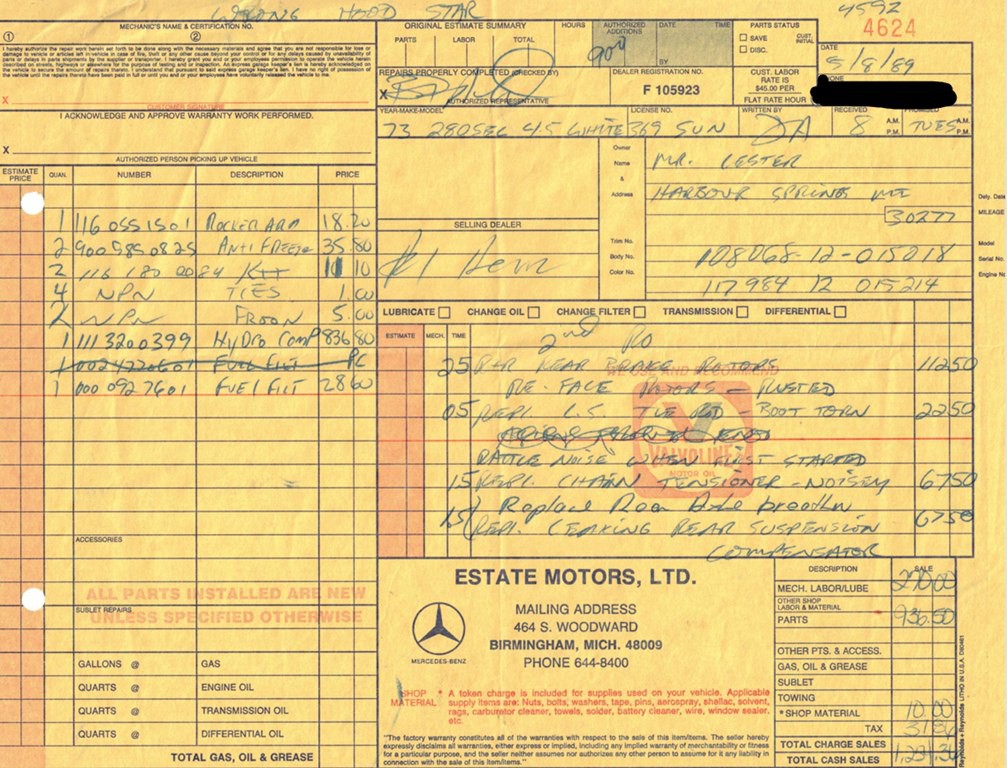 WRONG HOOD STAR
4592
MECHANIC'S NAME & CERTIFICATION NO.
① ②
I hereby authorize the repair work herein set forth to be done along with the necessary materials and agree that you are not responsible for loss or
damage to vehicle or articles left in vehicle in case of fire, theft or any other cause beyond your control or for any delays caused by unavailability of
parts or delays in parts shipments by the supplier or transporter. I hereby grant you and/or your employees permission to operate the vehicle herein
X
CUSTOMER SIGNATURE
I ACKNOWLEDGE AND APPROVE WARRANTY WORK PERFORMED.
X
AUTHORIZED PERSON PICKING UP VEHICLE
ORIGINAL ESTIMATE SUMMARY
PARTS LABOR TOTAL
HOURS
AUTHORIZED ADDITIONS
DATE TIME
BY
900
PARTS STATUS
SAVE
DISC.
CUST. INITIAL
4624
DATE
5/8/89
REPAIRS PROPERLY COMPLETED (CHECKED BY)
X
AUTHORIZED REPRESENTATIVE
DEALER REGISTRATION NO.
F 105923
CUST. LABOR
RATE IS
$45.00 PER
FLAT RATE HOUR
YEAR-MAKE-MODEL
73 280SEL 4.5 WHITE
LICENSE NO.
369 SUN
WRITTEN BY
DA
RECEIVED
8 A.M. P.M.
TUES A.M. P.M.
Owner
Name
&
Address
MR. LESTER
HARBOUR SPRINGS MI
Dely. Date
MILEAGE
30277
SELLING DEALER
#1 Hem
Trim No.
Body No.
Color No.
Model
Serial No.
Engine No
108068-12-015018
117984 12 015214
ESTIMATE PRICE QUAN. NUMBER DESCRIPTION PRICE
1 116 055 1501 ROCKER ARM 18.20
2 900 585 0825 ANTI FREEZE 35.80
2 116 180 0084 Kit 11 10
4 NPN TIES 1.00
2 NPN FREON 5.00
1 111 3200399 Hydro Comp 836 80
1 002 4770601 FUEL FILT RC
1 000 092 7601 FUEL FILT 28 60
LUBRICATE CHANGE OIL CHANGE FILTER TRANSMISSION DIFFERENTIAL
ESTIMATE MECH. TIME
2nd RO
WE USE AND RECOMMEND
VALVOLINE
MOTOR OIL
25 R+R REAR BRAKE ROTORS 112 50
RE-FACE ROTORS - RUSTED
05 REPL L.S. TIE ROD - BOOT TORN 22 50
RATTLE NOISE WHEN FIRST STARTED
15 REPL CHAIN TENSIONER - NOISEY 67 50
Replace Rear Axle breather
15 REPL LEAKING REAR SUSPENSION 67 50
COMPENSATOR
ACCESSORIES
ALL PARTS INSTALLED ARE NEW
UNLESS SPECIFIED OTHERWISE
SUBLET REPAIRS
GALLONS @ GAS
QUARTS @ ENGINE OIL
QUARTS @ TRANSMISSION OIL
QUARTS @ DIFFERENTIAL OIL
TOTAL GAS, OIL & GREASE
ESTATE MOTORS, LTD.
MERCEDES-BENZ
MAILING ADDRESS
464 S. WOODWARD
BIRMINGHAM, MICH. 48009
PHONE 644-8400
SHOP MATERIAL
* A token charge is included for supplies used on your vehicle. Applicable
supply items are: Nuts, bolts, washers, tape, pins, aerospray, shellac, solvent,
rags, carburator cleaner, towels, solder, battery cleaner, wire, window sealer.
etc.
"The factory warranty constitutes all of the warranties with respect to the sale of this item/items. The seller hereby
expressly disclaims all warranties, either express or implied, including any implied warranty of merchantability or fitness
for a particular purpose, and the seller neither assumes nor authorizes any other person to assume for it any liability in
connection with the sale of this item/items."
DESCRIPTION SALE
MECH. LABOR/LUBE 270.00
OTHER SHOP LABOR & MATERIAL
PARTS 936.50
OTHER PTS. & ACCESS.
GAS, OIL & GREASE
SUBLET
TOWING
*SHOP MATERIAL 10.00
TAX
TOTAL CHARGE SALES
TOTAL CASH SALES
Reynolds + Reynolds LITHO IN U.S.A.